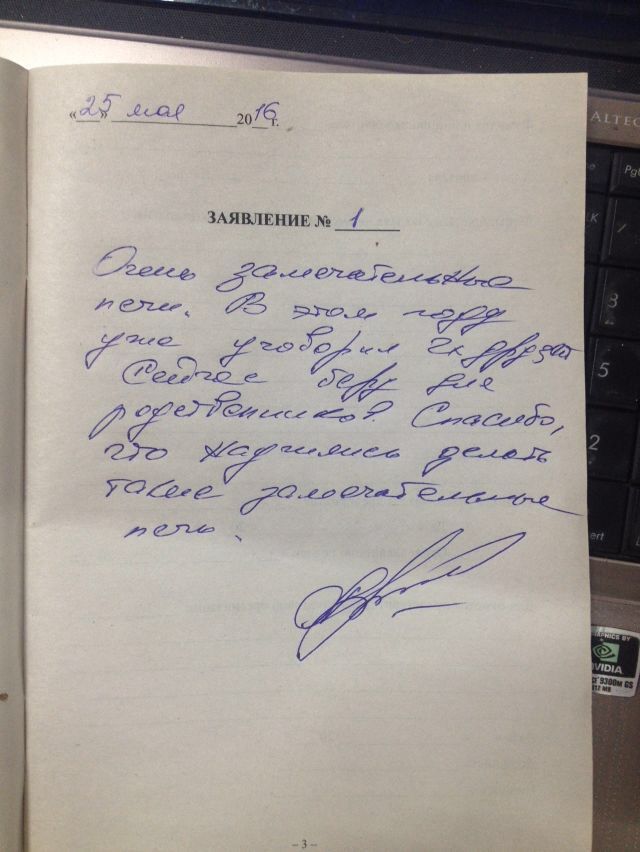 «25» мая 2016 г.
ЗАЯВЛЕНИЕ № 1
Очень замечательные
печи. В этом году
уже уговорил 2х друзей
Сейчас беру для
родственников. Спасибо,
что научились делать
такие замечательные
печи.
- 3 -
ALTEC
PgU
LK
/
3
5
2
ert
GRAPHICS BY
NVIDIA
9300M GS
512 MB